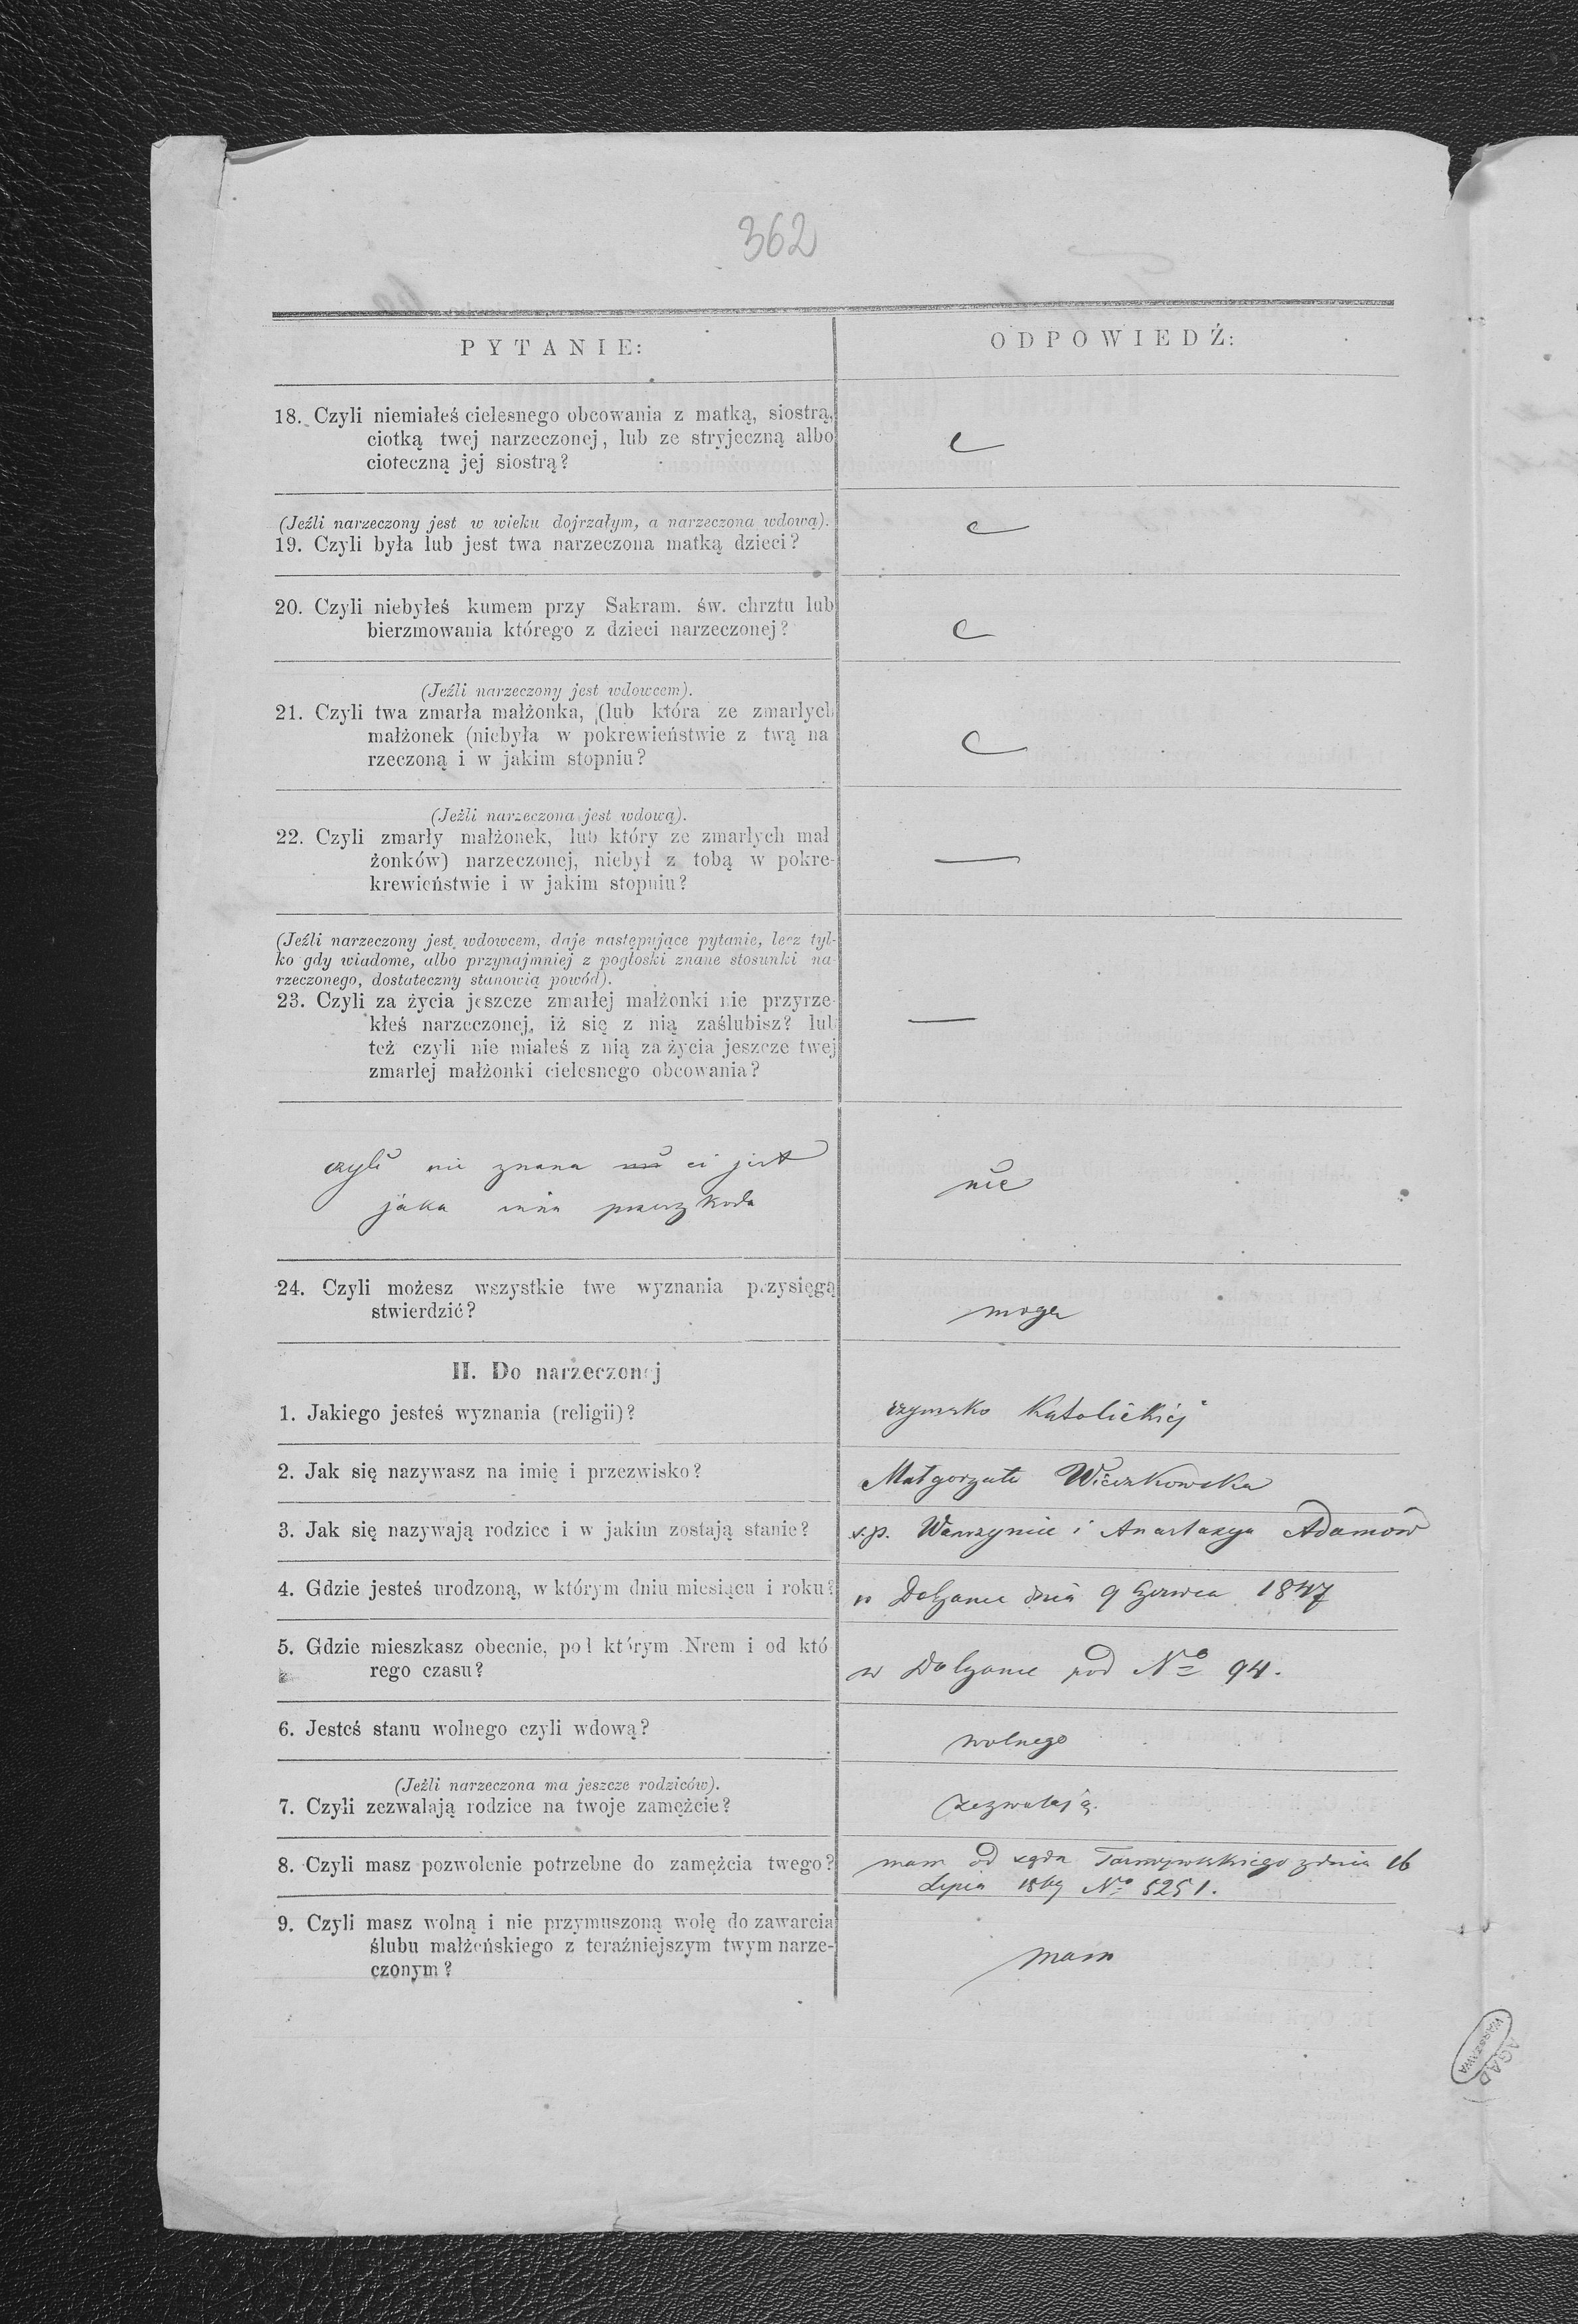 362
PYTANIE:
ODPOWIEDŹ:
18. Czyli niemiałeś cielesnego obcowania z matką, siostrą,
ciotką twej narzeczonej, lub ze stryjeczną albo
cioteczną jej siostrą?
(Jeźli narzeczony jest w wieku dojrzałym, a narzeczona wdową).
19. Czyli była lub jest twa narzeczona matką dzieci?
20. Czyli niebyłeś kumem przy Sakram. św. chrztu lub
bierzmowania którego z dzieci narzeczonej?
(Jeźli narzeczony jest wdowcem).
21. Czyli twa zmarła małżonka, (lub która ze zmarłych
małżonek (niebyła w pokrewieństwie z twą na
rzeczoną i w jakim stopniu?
(Jeźli narzeczona jest wdową).
22. Czyli zmarły małżonek, lub który ze zmarłych mał
żonków) narzeczonej, niebył z tobą w pokre-
krewieństwie i w jakim stopniu?
—
(Jeźli narzeczony jest wdowcem, daje następujące pytanie, lecz tyl-
ko gdy wiadome, albo przynajmniej z pogłoski znane stosunki na-
rzeczonego, dostateczny stanowią powód).
23. Czyli za życia jeszcze zmarłej małżonki nie przyrze-
kłeś narzeczonej, iż się z nią zaślubisz? lub
też czyli nie miałeś z nią za życia jeszcze twej
zmarłej małżonki cielesnego obcowania?
—
czyli nie znana ci jest
jaka inna przeszkoda
nie
24. Czyli możesz wszystkie twe wyznania przysięgą
stwierdzić?
mogę
II. Do narzeczonej
1. Jakiego jesteś wyznania (religii)?
rzymsko Katolickiej
2. Jak się nazywasz na imię i przezwisko?
Małgorzata Wieczkowska
3. Jak się nazywają rodzice i w jakim zostają stanie?
s.p. Wawrzyniec i Anastazya Adamów
4. Gdzie jesteś urodzoną, w którym dniu miesiącu i roku?
w Dołżance dnia 9 Czerwca 1847
5. Gdzie mieszkasz obecnie, pod którym Nrem i od któ
rego czasu?
w Dołżance pod No 94.
6. Jesteś stanu wolnego czyli wdową?
wolnego
(Jeźli narzeczona ma jeszcze rodziców).
7. Czyli zezwalają rodzice na twoje zamęźcie?
zezwalają.
8. Czyli masz pozwolenie potrzebne do zamężcia twego?
mam od sądu Tarnopolskiego z dnia 16
Lipca 1869 No 5251.
9. Czyli masz wolną i nie przymuszoną wolę do zawarcia
ślubu małżeńskiego z teraźniejszym twym narze-
czonym?
mam
AGAD
WARSZAWA